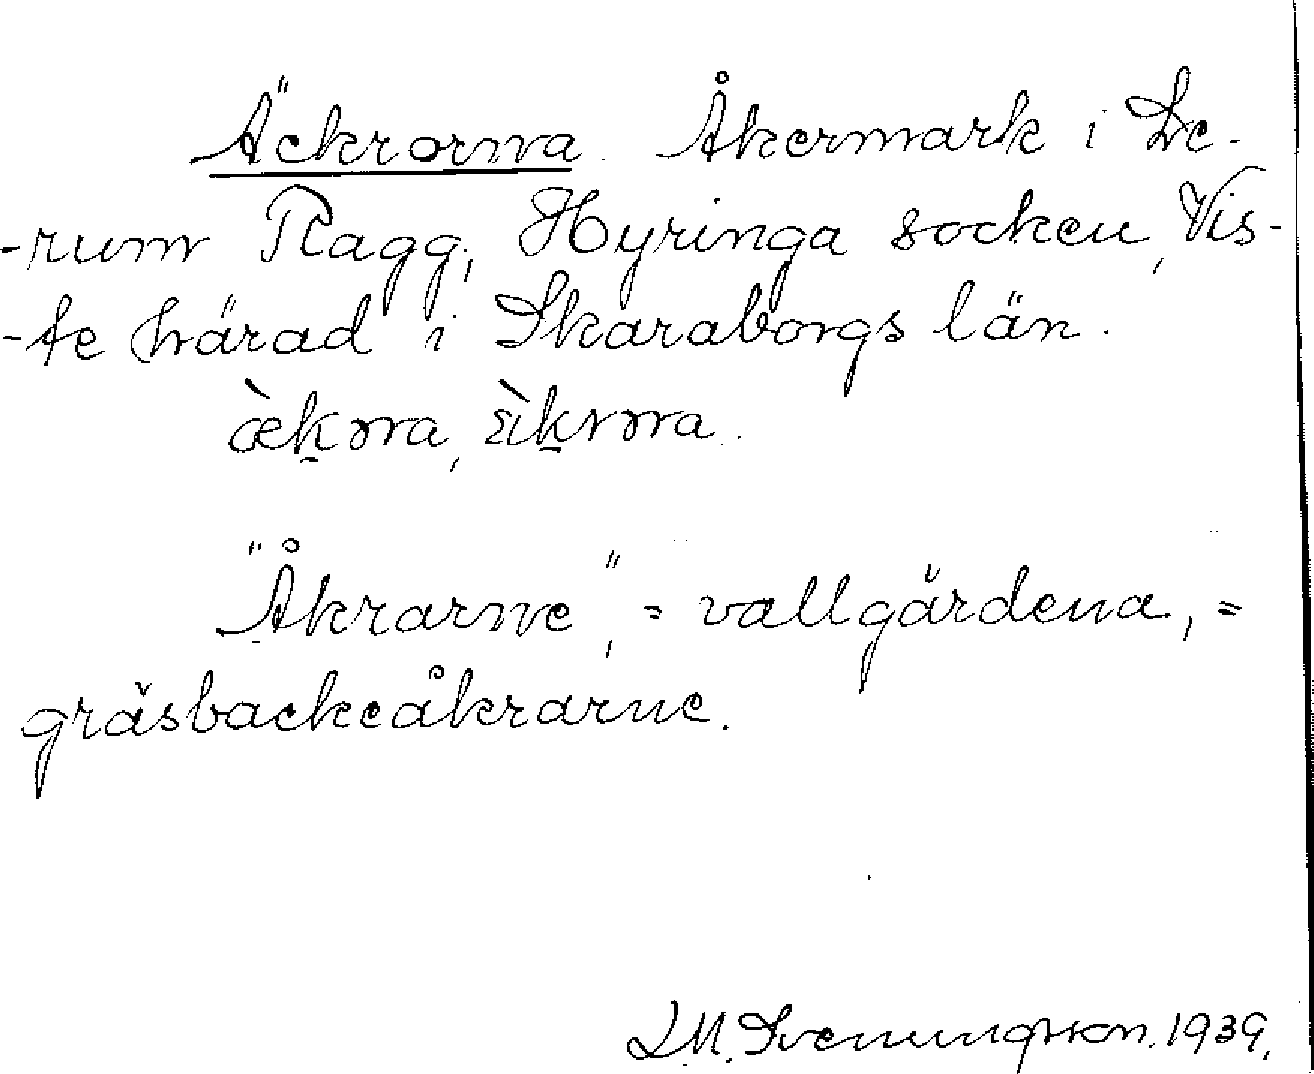 Äckrorna. Åkermark i Le-
-rum Ragg, Hyringa socken, Vis-
-te härad i Skaraborgs län.
"Åkrarne", = vallgärdena, =
gräsbackeåkrarne.
L.M. Svenungsson. 1939.